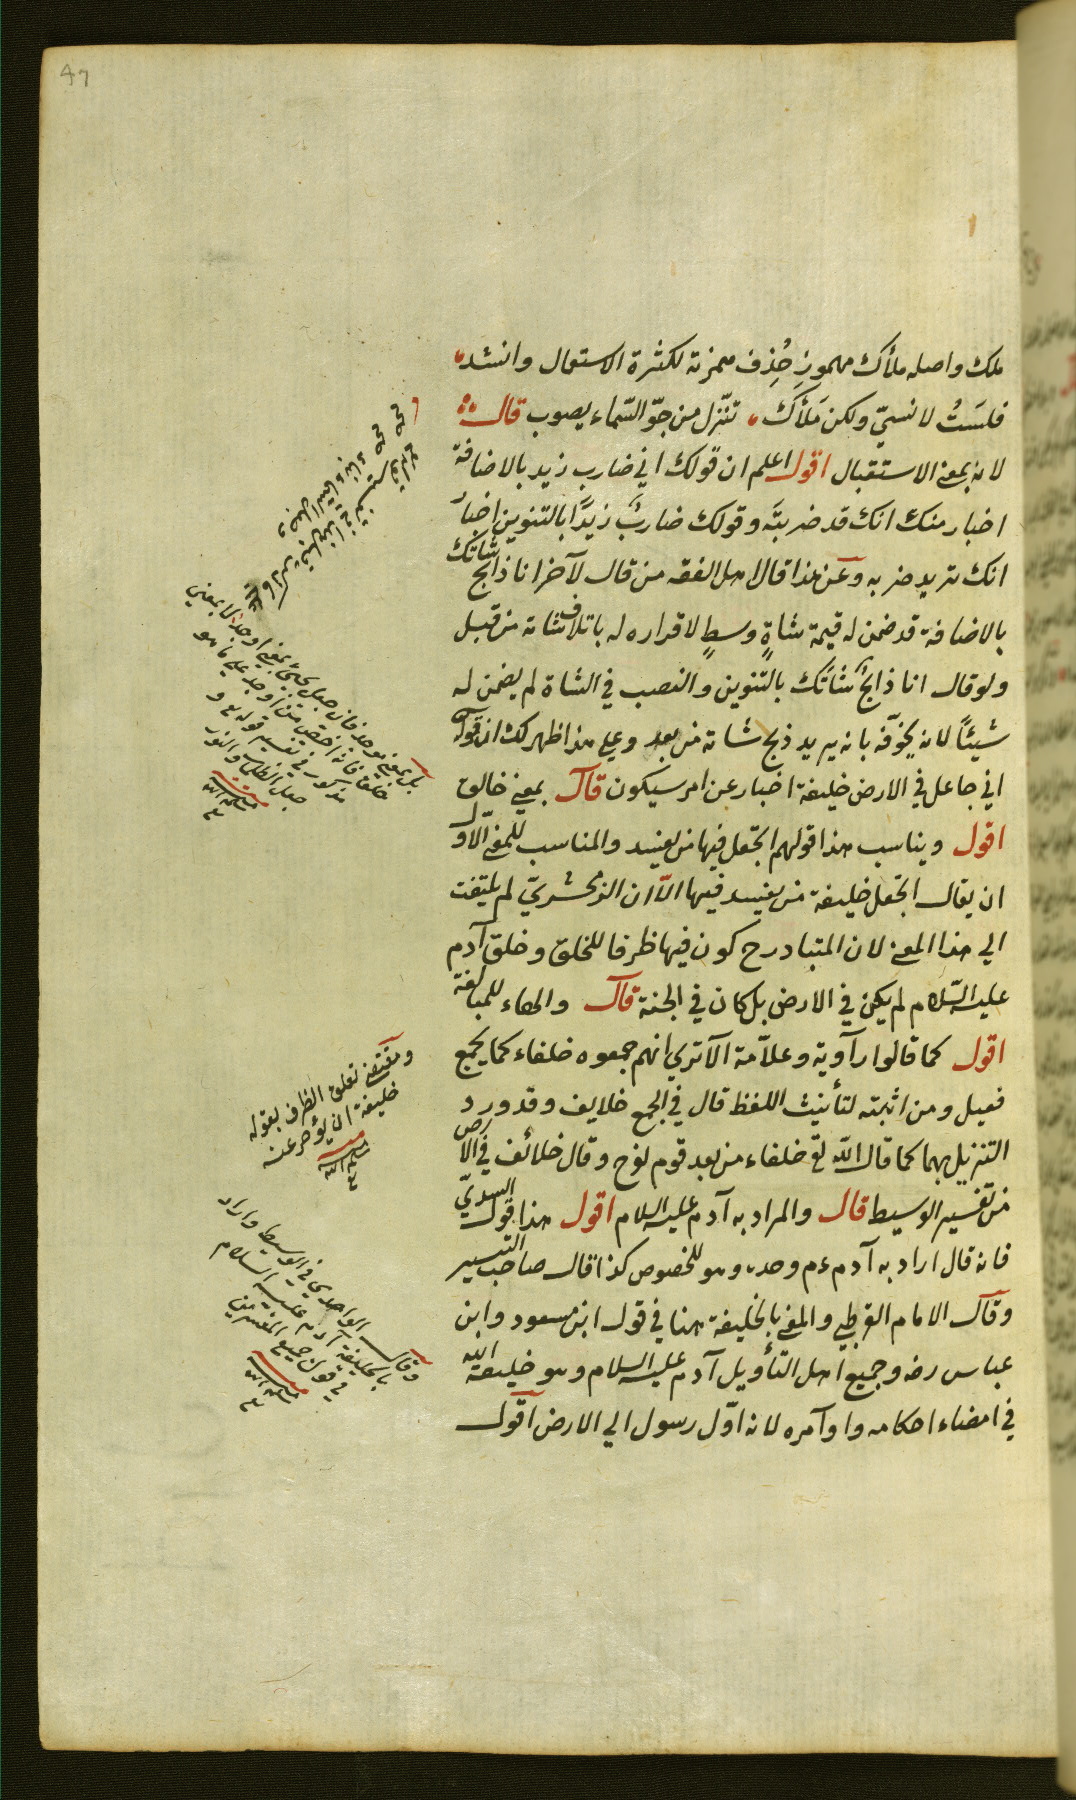 47
ملك واصله ملأك مهموز حُذِف همزته لكثرة الاستعمال وانشد
فلسَتُ لانسيّ ولكن مَلأكَ تنّزل من جوّ السّماء يصوب قال
لانه بمعنى الاستقبال اقول اعلم ان قولك اني ضارب زيد بالاضافة
اخبار منك انك قد ضربتَه وقولك ضاربٌ زيدًا بالتنوين اخبار
انك تريد ضربه وعن هذا قال اهل الفقه من قال لآخر انا ذابح شاتك
بالاضافة قد ضمن له قيمة شاةٍ وسطٍ لاقراره له باتلاف شاته من قبل
ولو قال انا ذابحٌ شاتَك بالتنوين والنصب في الشاة لم يضمن له
شيئًا لانه يخوّفه بانه يريد ذبح شاته من بعد وعلى هذا ظهر لك ان قوله
اني جاعل في الارض خليفة اخبار عن امر سيكون قال بمعنى خالق
اقول ويناسب هذا قولهم اتجعل فيها من يفسد والمناسب للمعنى الاول
ان يقال اتجعل خليفة من يفسد فيها الاّ ان الزمخشريّ لم يلتفت
الى هذا المعنى لان المتبادر ح كون فيها ظرفا للخلق وخلق آدم
عليه السّلام لم يكن في الارض بل كان في الجنة قال والهاء للمبالغة
اقول كما قالوا راوية وعلاّمة الا ترى انهم جمعوه خلفاء كما يجمع
فعيل ومن اثبته لتأنيث اللفظ قال في الجمع خلايف وقد ورد
التنزيل بهما كما قال اللّه تع خلفاء من بعد قوم نوح وقال خلائف في الارض
من تفسير الوسيط قال والمراد به آدم عليه السلام اقول هذا قول السديّ
فانه قال اراد به آدم ءم وحده وهو للخصوص كذا قال صاحب التيسير
وقال الامام القرطبي والمعنى بالخليفة هنا في قول ابن مسعود وابن
عباس رضه وجميع اهل التأويل آدم عليه السلام وهو خليفة الله
في امضاء احكامه واوآمره لانه اوّل رسول الى الارض اقول
خليفة فانه اخص من اوجد على ما هو
مذكور في تفسير قوله تع و
جعل الظلمات والنور
ومقتضى تعلق الظرف بقوله
خليفة ان يؤخر عنه
وقال الواحدي في الوسيط واراد
بالخليفة آدم عليه السلام
في قول جميع المفسرين